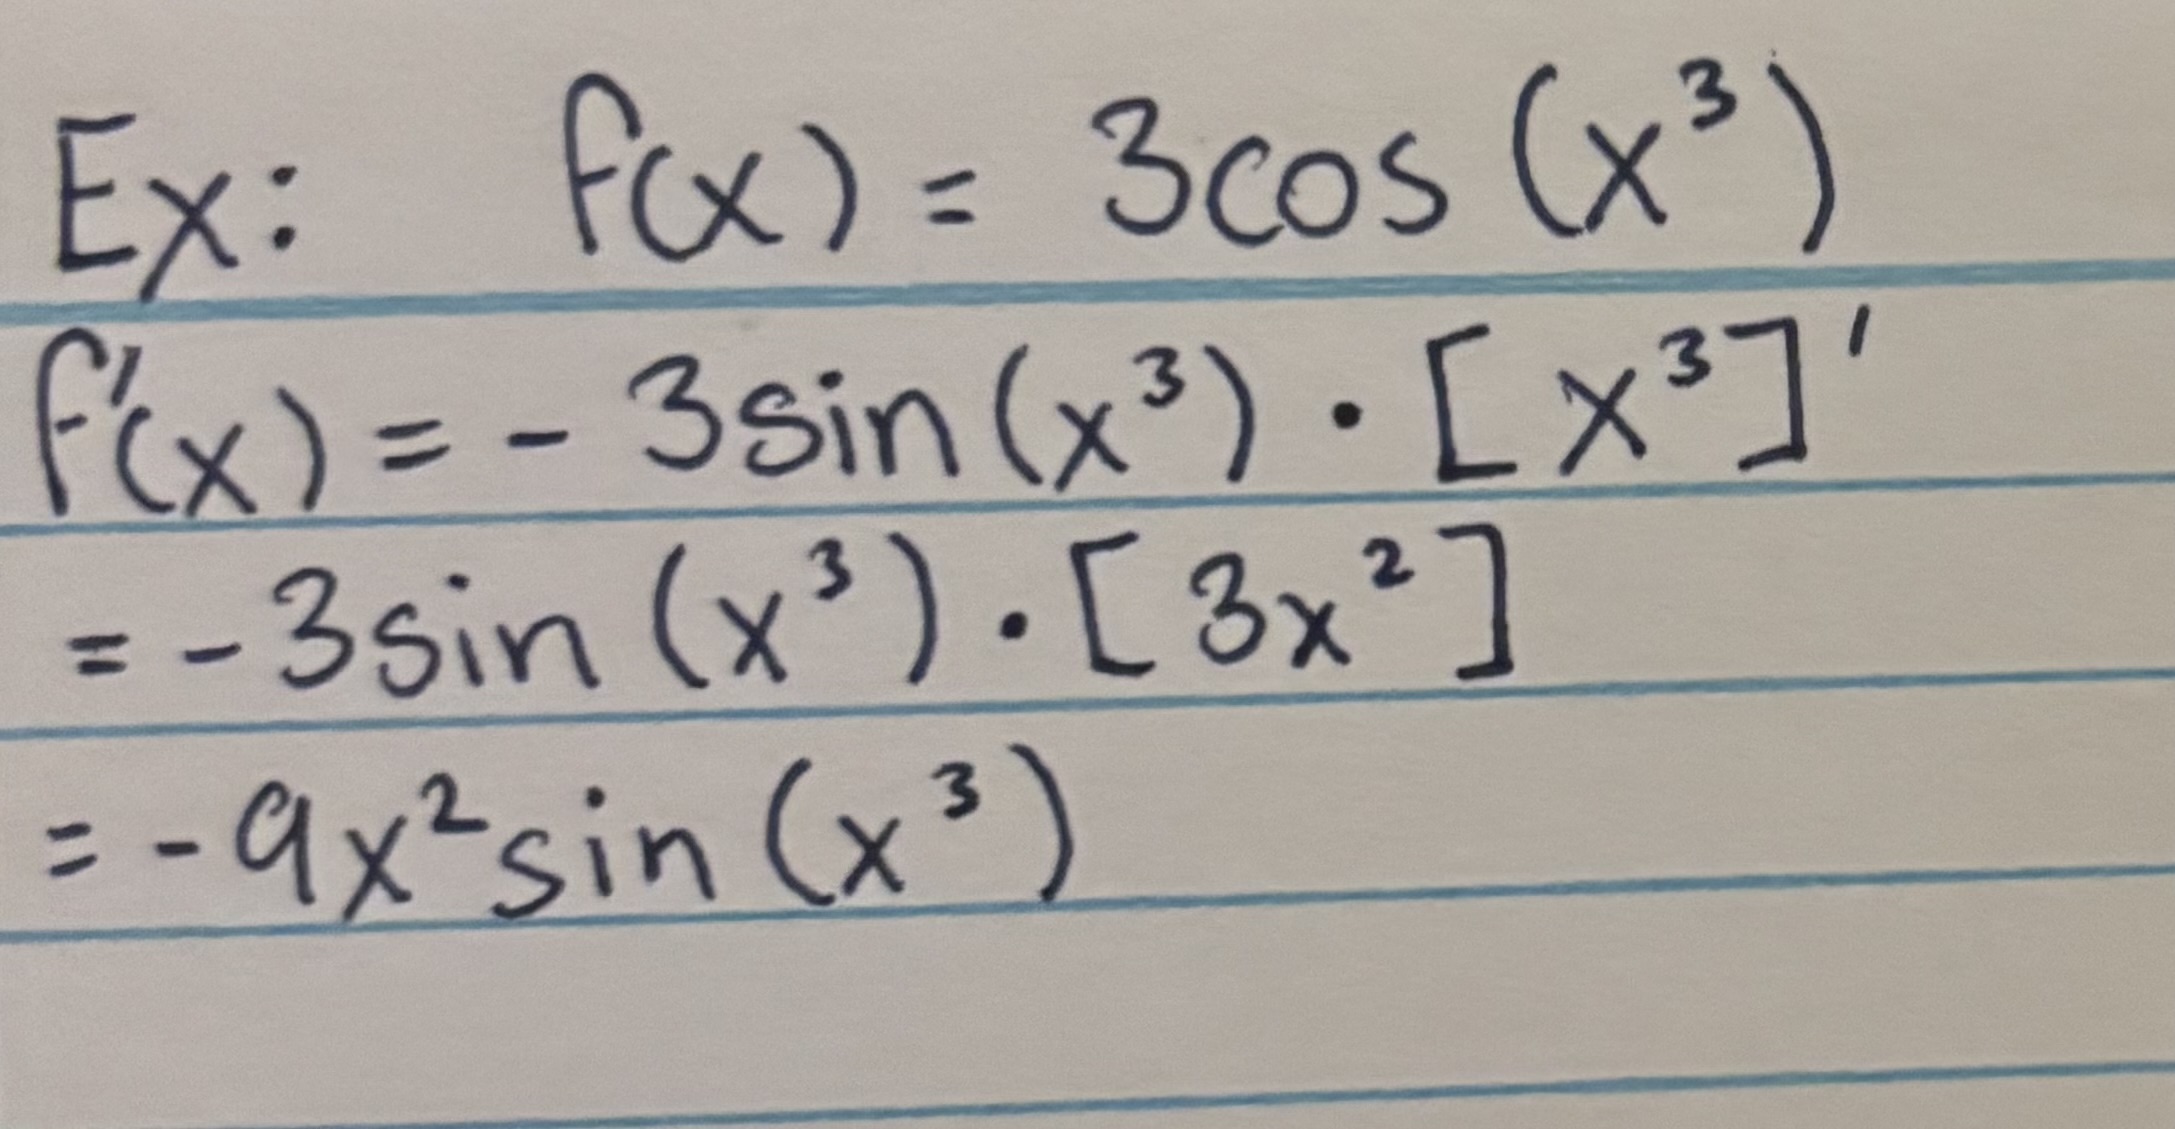 Ex: f(x) = 3cos (x³)
f'(x) = - 3sin (x³) · [x³]'
= - 3sin (x³) · [3x²]
= - 9x²sin (x³)